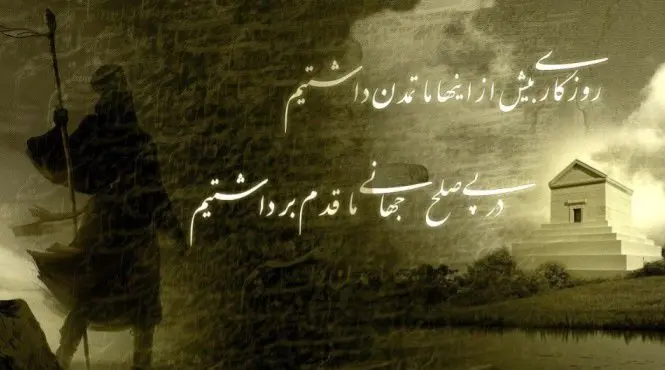 روزگاری بیش از اینها ما تمدن داشتیم
در پی صلح جهانی ما قدم برداشتیم